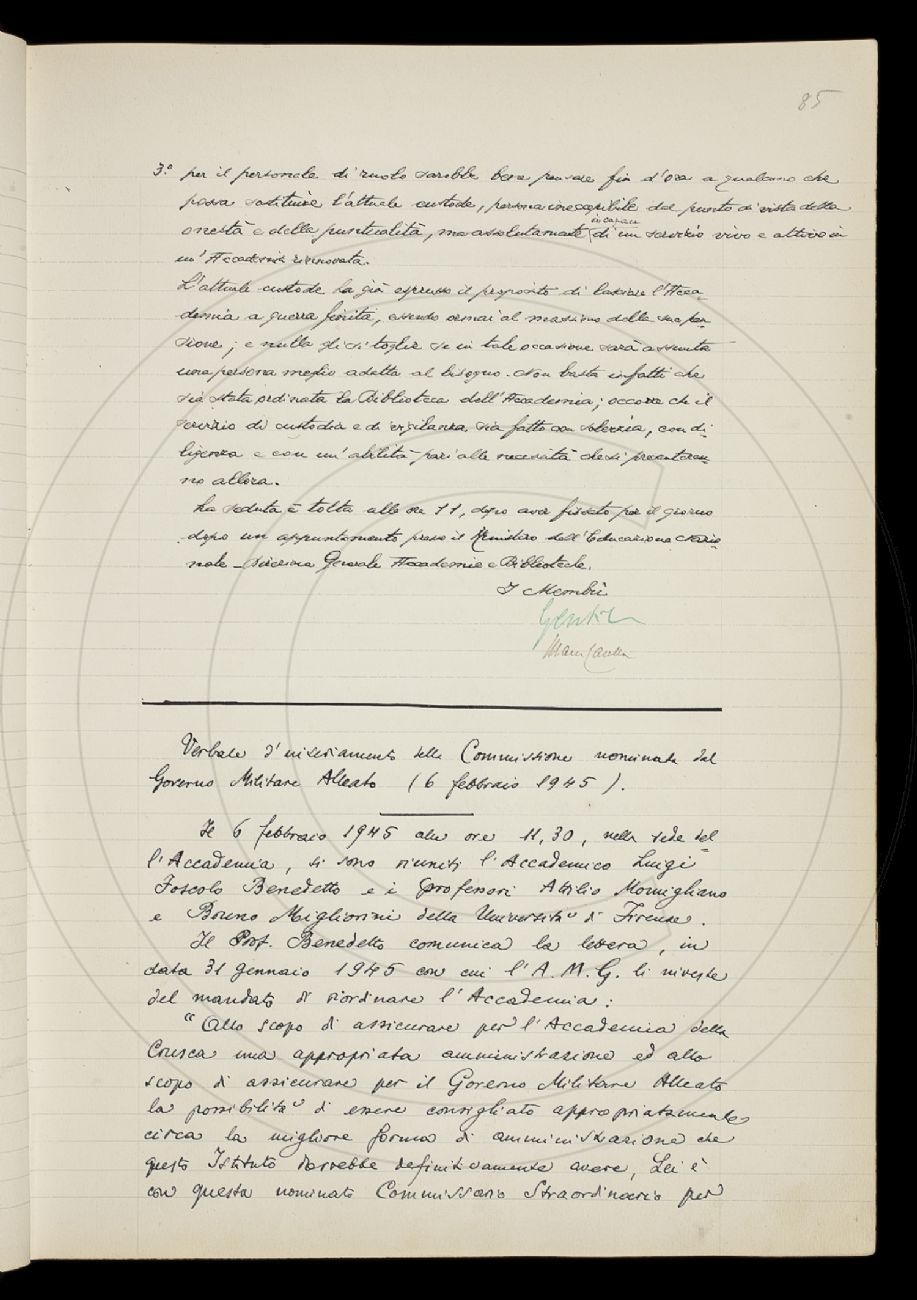 85
3º per il personale di ruolo sarebbe bene pensare fin d'ora a qualcuno che
possa sostituire l'attuale custode, persona ineccepibile dal punto di vista della
onestà e della puntualità, ma assolutamente incapace di un servizio vivo e attivo in
un'Accademia rinnovata.
L'attuale custode ha già espresso il proposito di lasciare l'Acca-
demia a guerra finita, essendo ormai al massimo della sua pen-
sione; e nulla gli si toglie se in tale occasione sarà assunta
una persona meglio adatta al bisogno. Non basta infatti che
sia stata ordinata la Biblioteca dell'Accademia; occorre che il
servizio di custodia e di vigilanza sia fatto con solerzia, con di-
ligenza e con un'abilità pari alle necessità che si presenteran-
no allora.
La seduta è tolta alle ore 11, dopo aver fissato per il giorno
dopo un appuntamento presso il Ministero dell'Educazione Nazio-
nale - Direzione Generale Accademie e Biblioteche.
I Membri
Verbale d'insediamento della Commissione nominata dal
Governo Militare Alleato (6 febbraio 1945).
Il 6 febbraio 1945 alle ore 11,30, nella sede del
l'Accademia, si sono riuniti l'Accademico Luigi
Foscolo Benedetto e i professori Attilio Momigliano
e Bruno Migliorini della Università di Firenze.
Il Prof. Benedetto comunica la lettera, in
data 31 gennaio 1945 con cui l'A.M.G. li investe
del mandato di riordinare l'Accademia:
"Allo scopo di assicurare per l'Accademia della
Crusca una appropriata amministrazione ed allo
scopo di assicurare per il Governo Militare Alleato
la possibilità di essere consigliato appropriatamente
circa la migliore forma di amministrazione che
questo Istituto dovrebbe definitivamente avere, Lei è
con questa nominato Commissario Straordinario per